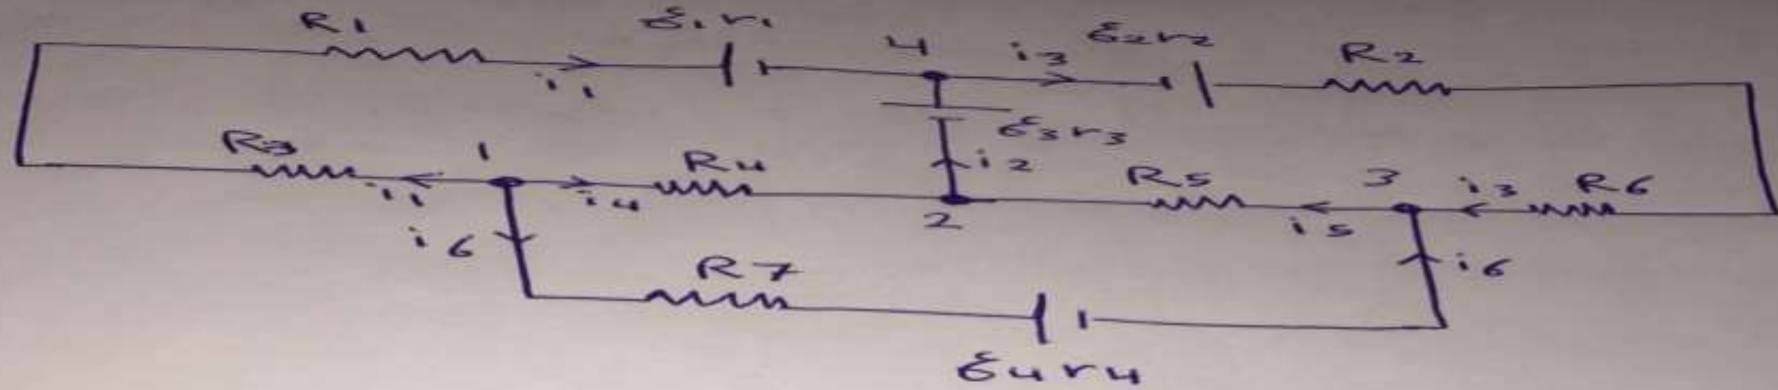 R1 ℰ1r1 4 i3 ℰ2r2 R2
i1
ℰ3r3
R3 1 R4 i2 R5 3 i3 R6
i1 i4 2 i5
i6 R7 i6
ℰ4r4